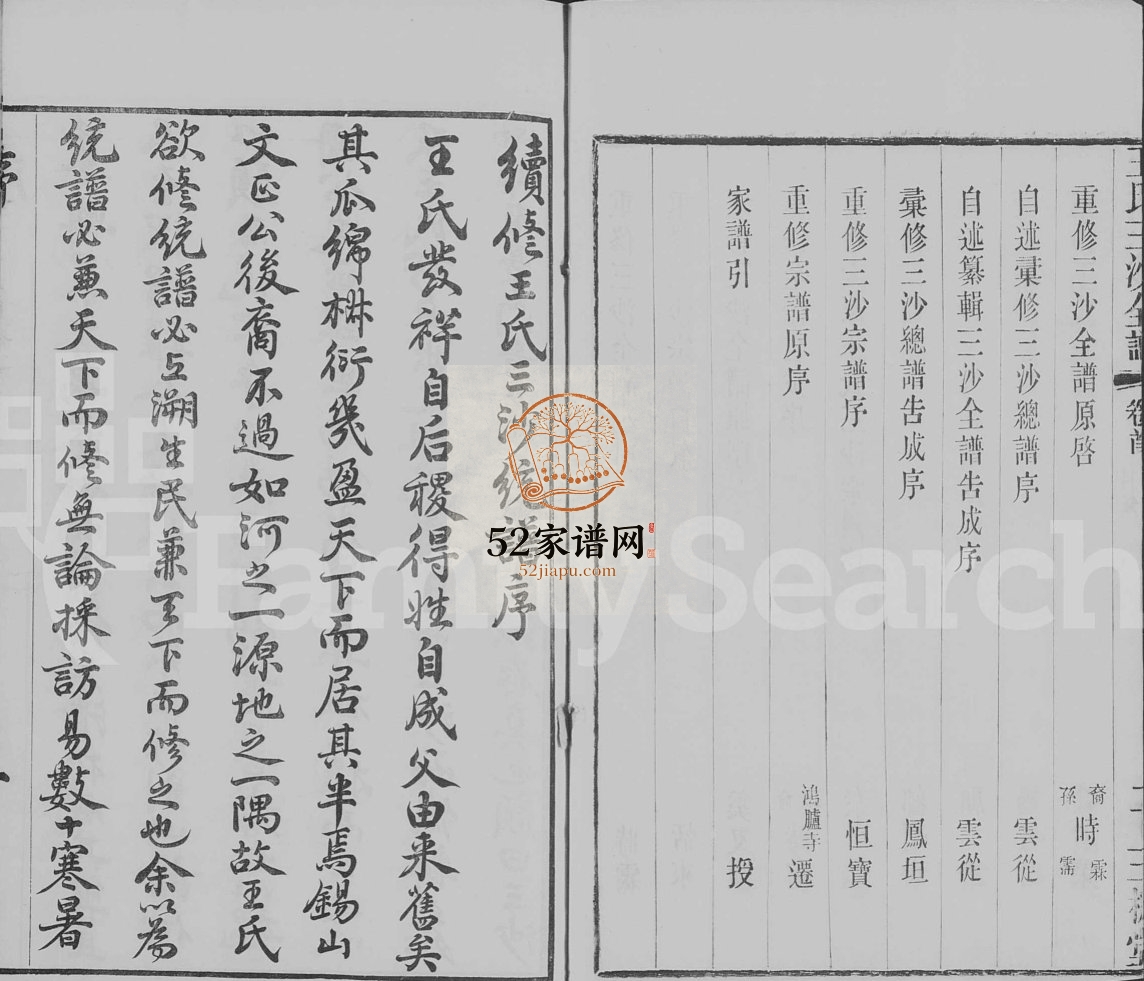 王氏三沙全譜 卷首 三槐堂
重修三沙全譜原啓 裔孫時霖霈
自述彙修三沙總譜序 雲從
自述纂輯三沙全譜告成序 雲從
彙修三沙總譜告成序 鳳垣
重修三沙宗譜序 恒寶
重修宗譜原序 鴻臚寺遷
家譜引 授
續修王氏三沙統譜序
王氏發祥自后稷得姓自成父由来舊矣
其瓜綿椒衍幾盈天下而居其半焉錫山
文正公後裔不過如河之一源地之一隅故王氏
欲修統譜必上溯生民兼天下而修之也余以為
統譜必兼天下而修無論採訪易數十寒暑
52家谱网
52jiapu.com
FamilySearch